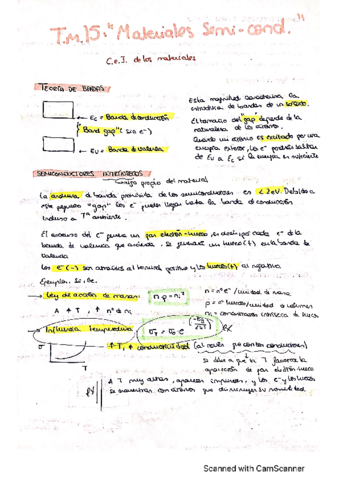 T.M.15: "Materiales Semi-cond."
C.e.I. de los materiales
TEORÍA DE BANDAS
Ec = Banda de conducción
Band gap (sin e-)
Ev = Banda de Valencia
Esta magnitud caracteriza la
estructura de bandas de un sólido.
El tamaño del "gap" depende de la
naturaleza de los átomos.
Cuando un átomo es excitado por una
energía exterior, los e- podrán saltar
de Ev a Ec si la energía es suficiente
SEMICONDUCTORES INTRÍNSECOS
propio del material
La anchura de banda prohibida de los semiconductores es < 2eV. Debido a
este pequeño "gap" los e- puede llegar hasta la banda de conducción
incluso a Tª ambiente.
El ascenso del e- genera un par electrón-hueco, es decir, por cada e- de la
banda de valencia que asciende, se genera un hueco (+) en la banda de
valencia
Los e- (-) son atraídos al terminal positivo y los huecos (+) al negativo
Ejemplos: Si, Ge.
Ley de acción de masas: n·p = ni²
A ↑ T, ↑ nº de ni
n = nº e- / unidad de
p = nº huecos / unidad de volumen
ni = concentración intrínseca de
Influencia Temperatura
σ
T
↑ T, ↑ conductividad (al revés que con los conductores)
Se debe a que ↑ T favorece la
aparición de par electrón hueco
A T muy altas, aparecen impurezas, y los e- y los huecos
se encuentran con átomos que disminuyen su movilidad.
Scanned with CamScanner